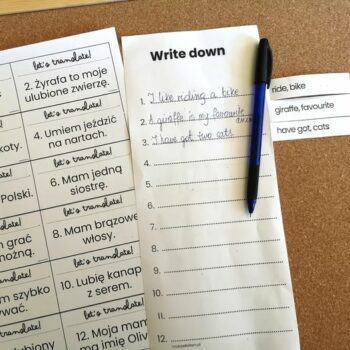 let's translate!
2. Żyrafa to moje
ulubione zwierzę.
let's translate!
koty.
4. Umiem jeździć
na nartach.
let's translate!
Polski.
6. Mam jedną
siostrę.
let's translate!
grać
nożną.
8. Mam brązowe
włosy.
let's translate!
szybko
10. Lubię kanap
z serem.
let's translate!
12. Moja mam
ma imię Oliv
Write down
1. I like riding a bike
2. A giraffe is my favourite
3. I have got two cats
4.
5.
6.
7.
8.
9.
10.
11.
12.
ride, bike
giraffe, favourite
have got, cats